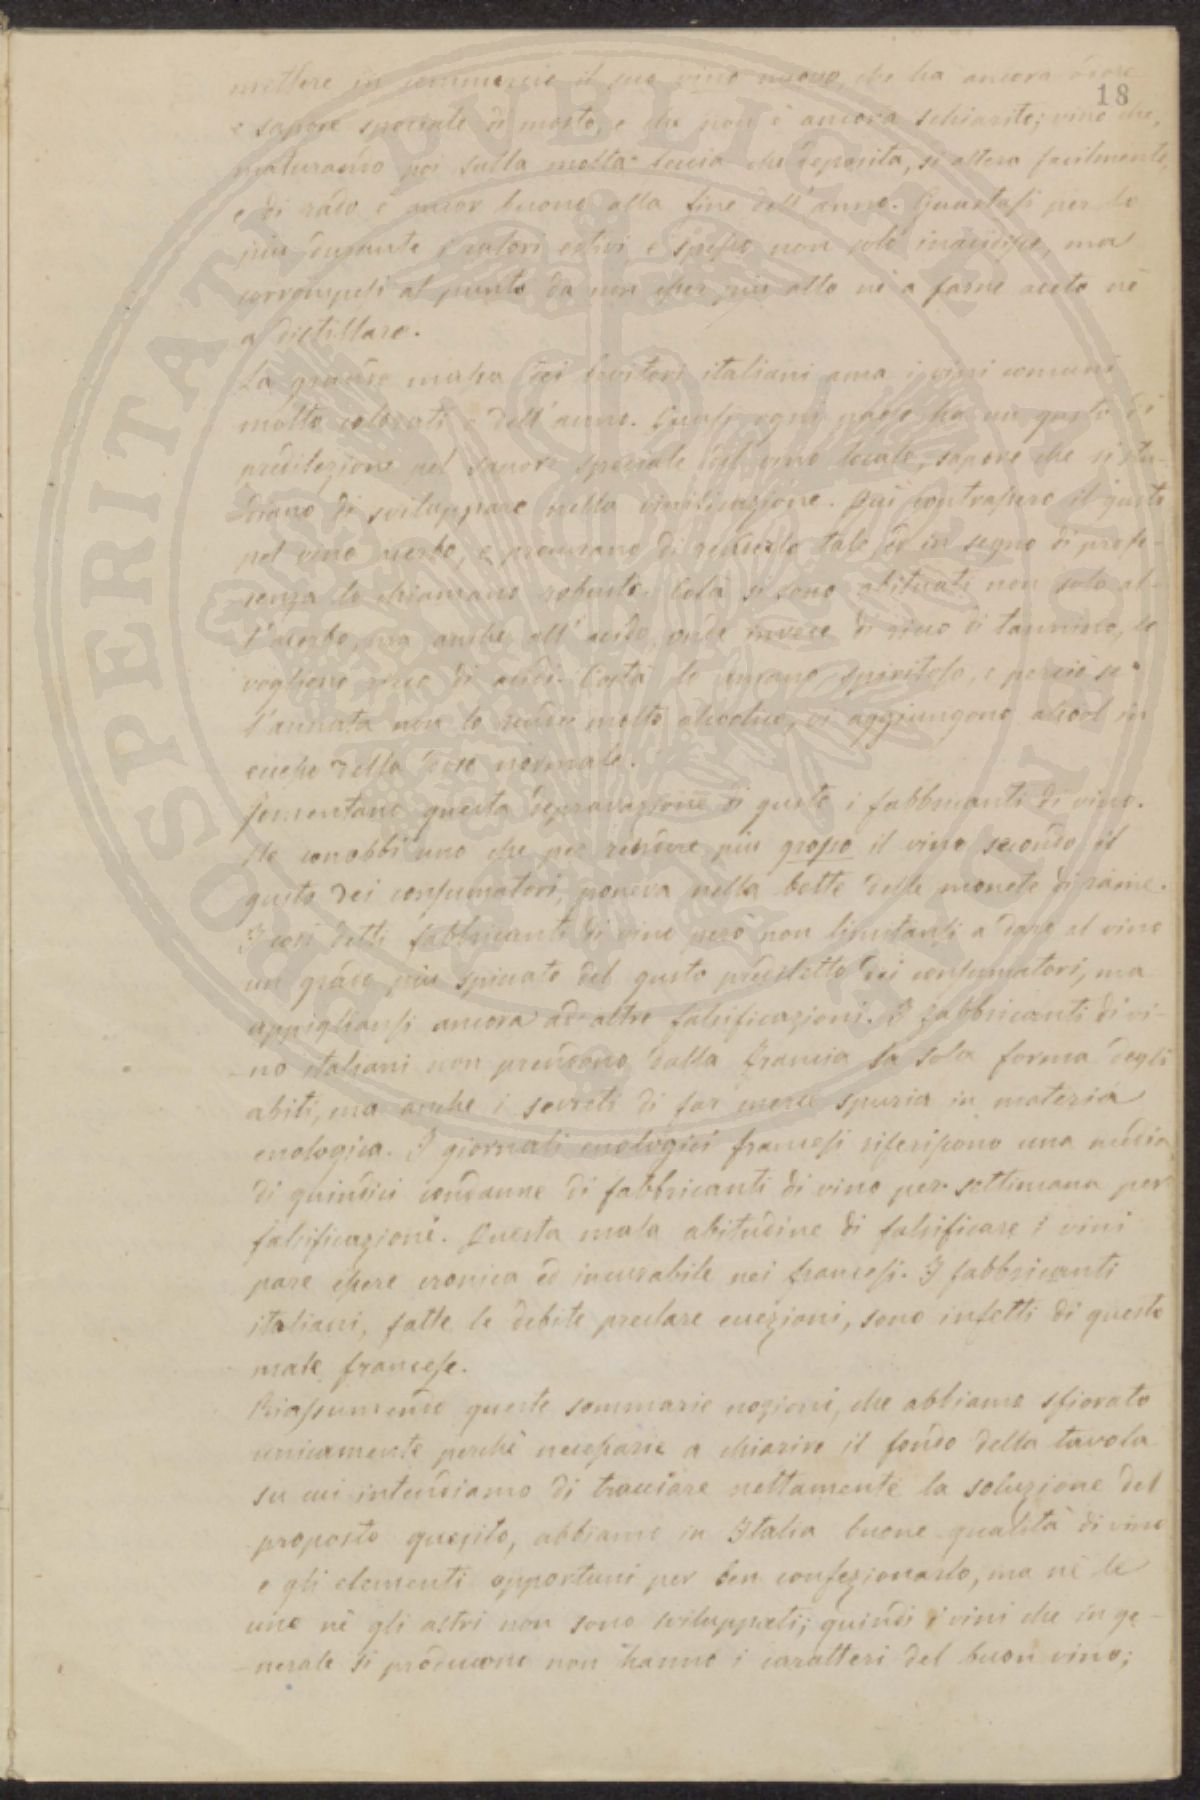 18
mettere in commercio il suo vino nuovo, che ha ancora odore
e sapore speciale di mosto, e che non è ancora schiarito; vino che,
maturando poi sulla molta feccia che deposita, si altera facilmente,
e di rado è ancor buono alla fine dell'anno. Guastasi per lo
più durante i calori estivi e spesso non solo inacidisce, ma
corrompesi al punto da non esser più atto nè a farne aceto nè
a distillare.
La grande massa dei bevitori italiani ama i vini comuni
molto colorati e dell'anno. Quasi ogni paese ha un gusto di
predilezione pel sapore speciale del vino locale, sapore che si stu-
diano di sviluppare nella vinificazione. Qui contrassero il gusto
pel vino acerbo, e procurano di tale ed in segno di prefe-
renza lo chiamano robusto. Colà si sono abituati non solo al-
l'acerbo, ma anche all'acido, onde invece di ricco di tannino, lo
vogliono ricco di acidi. Costà lo amano spiritoso, e perciò se
l'annata non lo rende molto alcolico, vi aggiungono alcool in
più della dose normale.
Fomentano questa depravazione di gusto i fabbricanti di vino.
Ne conobbi uno che per rendere più grosso il vino secondo il
gusto dei consumatori, poneva nella botte delle monete di rame.
I così detti fabbricanti di vino però non limitansi a dare al vino
un grado più spiccato del gusto prediletto dei consumatori, ma
appigliansi ancora ad altre falsificazioni. I fabbricanti di vi-
-no italiani non prendono dalla Francia la sola forma degli
abiti, ma anche i secreti di far merce spuria in materia
enologica. I giornali enologici francesi riferiscono una media
di quindici condanne di fabbricanti di vino per settimana per
falsificazioni. Questa mala abitudine di falsificare i vini
pare essere cronica ed incurabile nei francesi. I fabbricanti
italiani, fatte le debite preclare eccezioni, sono infetti di questo
male francese.
Riassumendo queste sommarie nozioni, che abbiamo sfiorato
unicamente perchè necessarie a chiarire il fondo della tavola
su cui intendiamo di tracciare nettamente la soluzione del
proposto quesito, abbiamo in Italia buone qualità di vino
e gli elementi opportuni per ben confezionarlo, ma nè le
une nè gli altri non sono sviluppati; quindi i vini che in ge-
-nerale si producono non hanno i caratteri del buon vino;